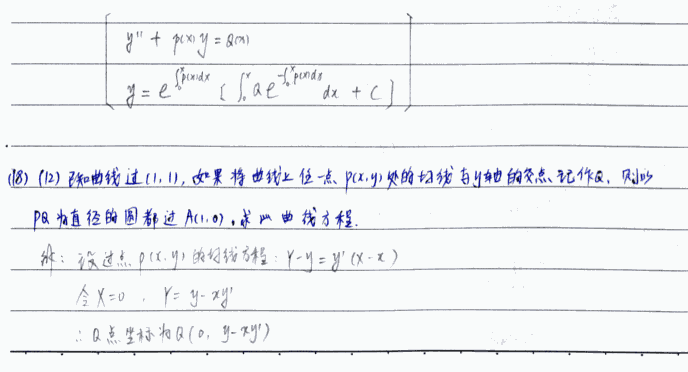 y'' + p(x) y = Q(x)
y = e^{∫_0^x p(x)dx} [ ∫_0^x Q e^{-∫_0^x p(x)dx} dx + C ]
(18) (12) 已知曲线过(1,1), 如果将曲线上任一点 P(x,y) 处的切线与y轴的交点记作Q, 则以
PQ为直径的圆都过A(1,0), 求此曲线方程.
解: 设过点 P(x,y) 的切线方程: Y-y = y'(X-x)
令X=0, Y= y-xy'
∴ Q点坐标为Q(0, y-xy')